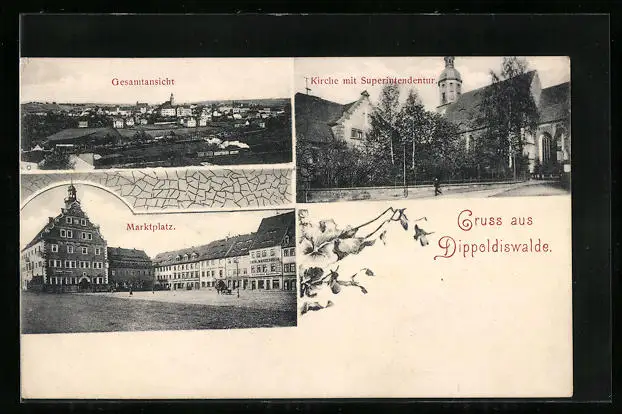 Gesamtansicht
Kirche mit Superintendentur.
Marktplatz.
Gruss aus
Dippoldiswalde.